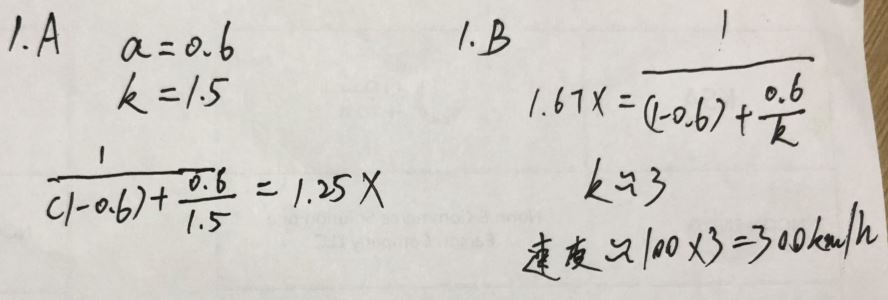 1.A
a=0.6
k=1.5
1/((1-0.6)+0.6/1.5) = 1.25X
1.B
1.67X = 1/((1-0.6)+0.6/k)
k≈3
速度≈100×3=300km/h